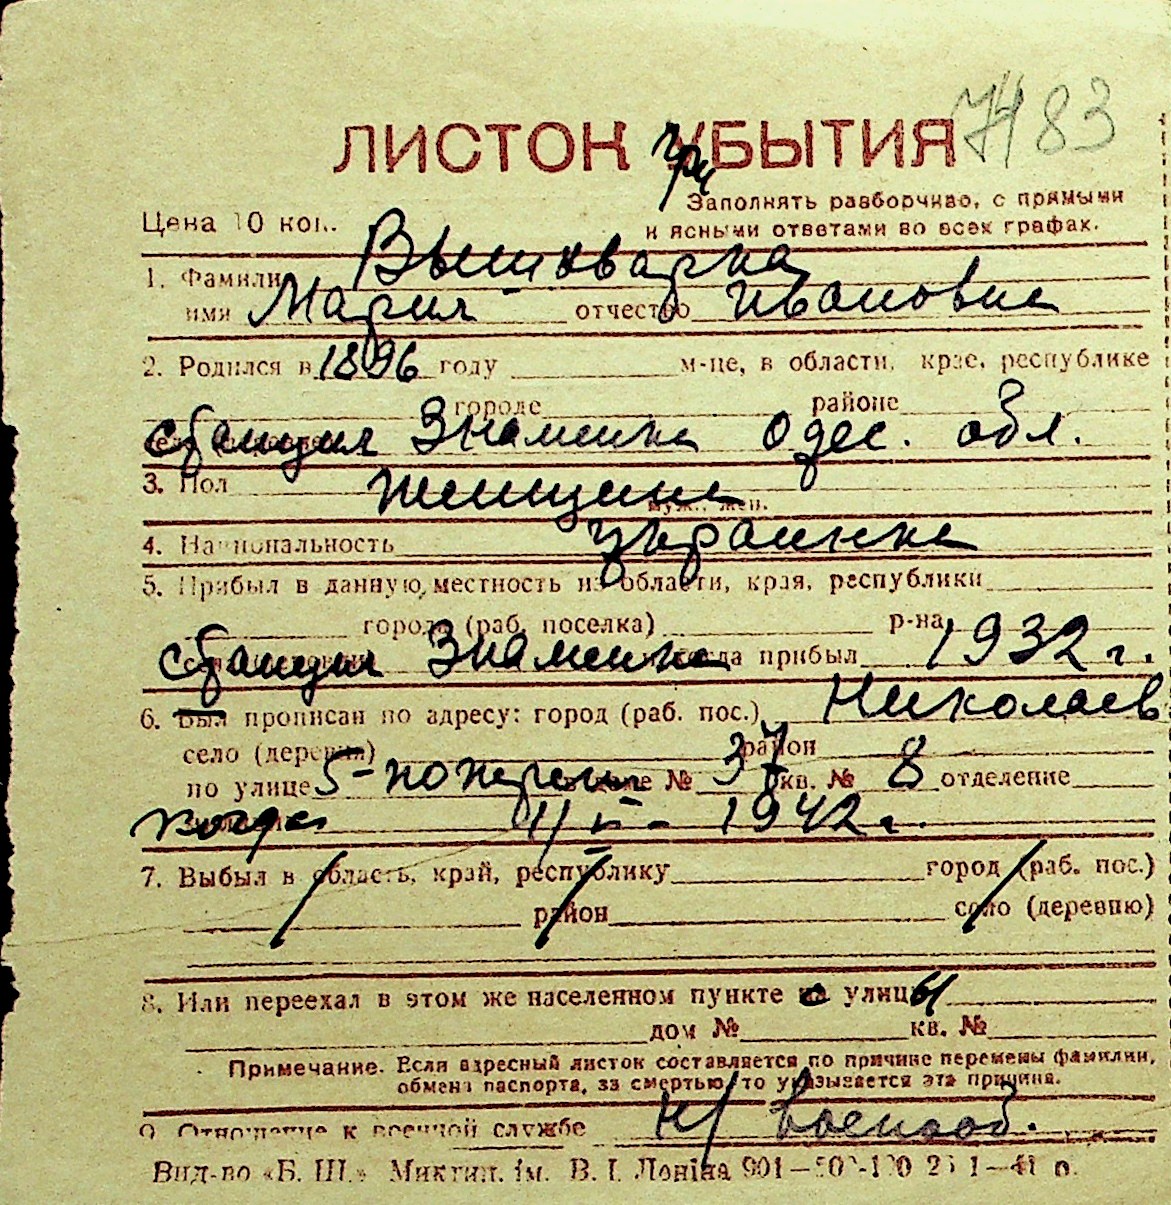 7483
ЛИСТОК УБЫТИЯ
при
Цена 10 коп.
Заполнять разборчиво, с прямыми
и ясными ответами во всех графах.
1. Фамилия
имя Мария отчество Ивановна
2. Родился в 1896 году м-це, в области, крае, республике
городе районе
станция Знаменка Одес. обл.
3. Пол женщина
муж., жен.
4. Национальность украинка
5. Прибыл в данную местность из области, края, республики
города (раб. поселка) р-на
станции Знаменка когда прибыл 1932 г.
6. Был прописан по адресу: город (раб. пос.) Николаев
село (деревня) район
по улице 5-пожарная в доме № 37 кв. № 8 отделение
когда 1942 г.
7. Выбыл в область, край, республику город (раб. пос.)
район село (деревню)
8. Или переехал в этом же населенном пункте с улицы
дом № кв. №
Примечание. Если адресный листок составляется по причине перемены фамилии,
обмена паспорта, за смертью, то указывается эта причина.
9. Отношение к военной службе н/военнооб.
Вид-во «Б. Ш.» Микт. ім. В. І. Леніна 901—